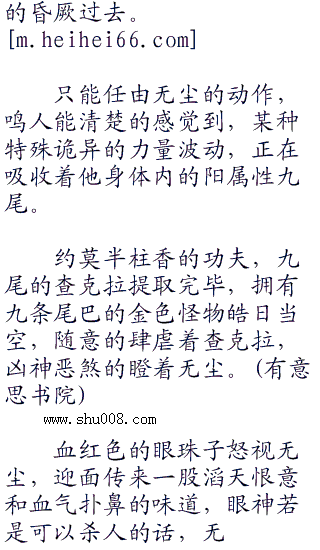 的昏厥过去。
[m.heihei66.com]
只能任由无尘的动作，
鸣人能清楚的感觉到，某种
特殊诡异的力量波动，正在
吸收着他身体内的阳属性九
尾。
约莫半柱香的功夫，九
尾的查克拉提取完毕，拥有
九条尾巴的金色怪物皓日当
空，随意的肆虐着查克拉，
凶神恶煞的瞪着无尘。(有意
思书院)
www.shu008.com
血红色的眼珠子怒视无
尘，迎面传来一股滔天恨意
和血气扑鼻的味道，眼神若
是可以杀人的话，无